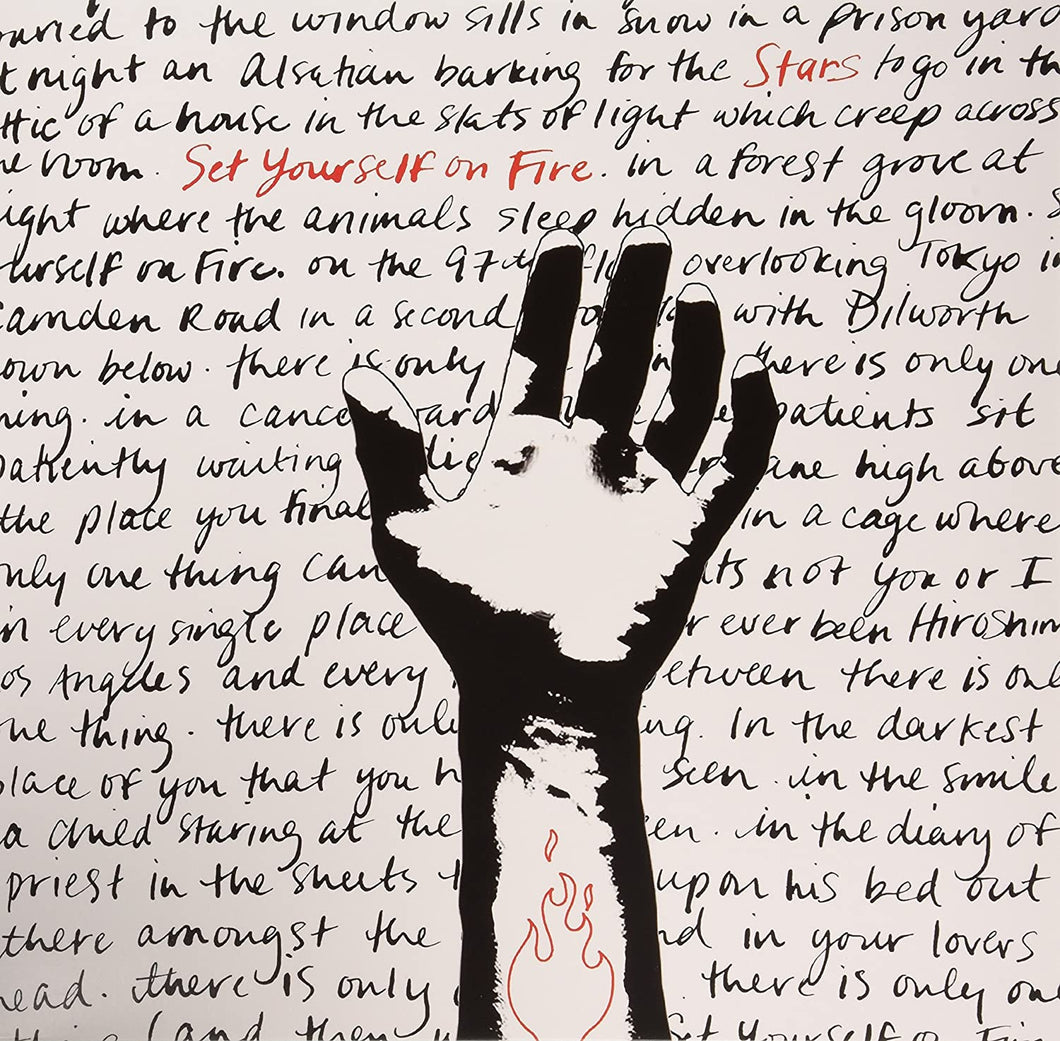 to the window sills in snow in a prison yard
night an Alsatian barking for the Stars to go in the
of a house in the slats of light which creep across
room. Set Yourself on Fire. in a forest grove at
where the animals sleep hidden in the gloom.
on Fire. on the 97th overlooking Tokyo
Camden Road in a second with Dilworth
below. there is only there is only one
in a patients sit
patiently waiting high above
the place you in a cage where
only one thing can not you or I
in every single place ever been
Angeles and every there is
thing. there is In the darkest
place of you that you seen. in the smile
a child staring at the in the diary of
priest in the sheets upon his bed out
there amongst the in your lovers
head. there is only there is only
(and then Set Yourself